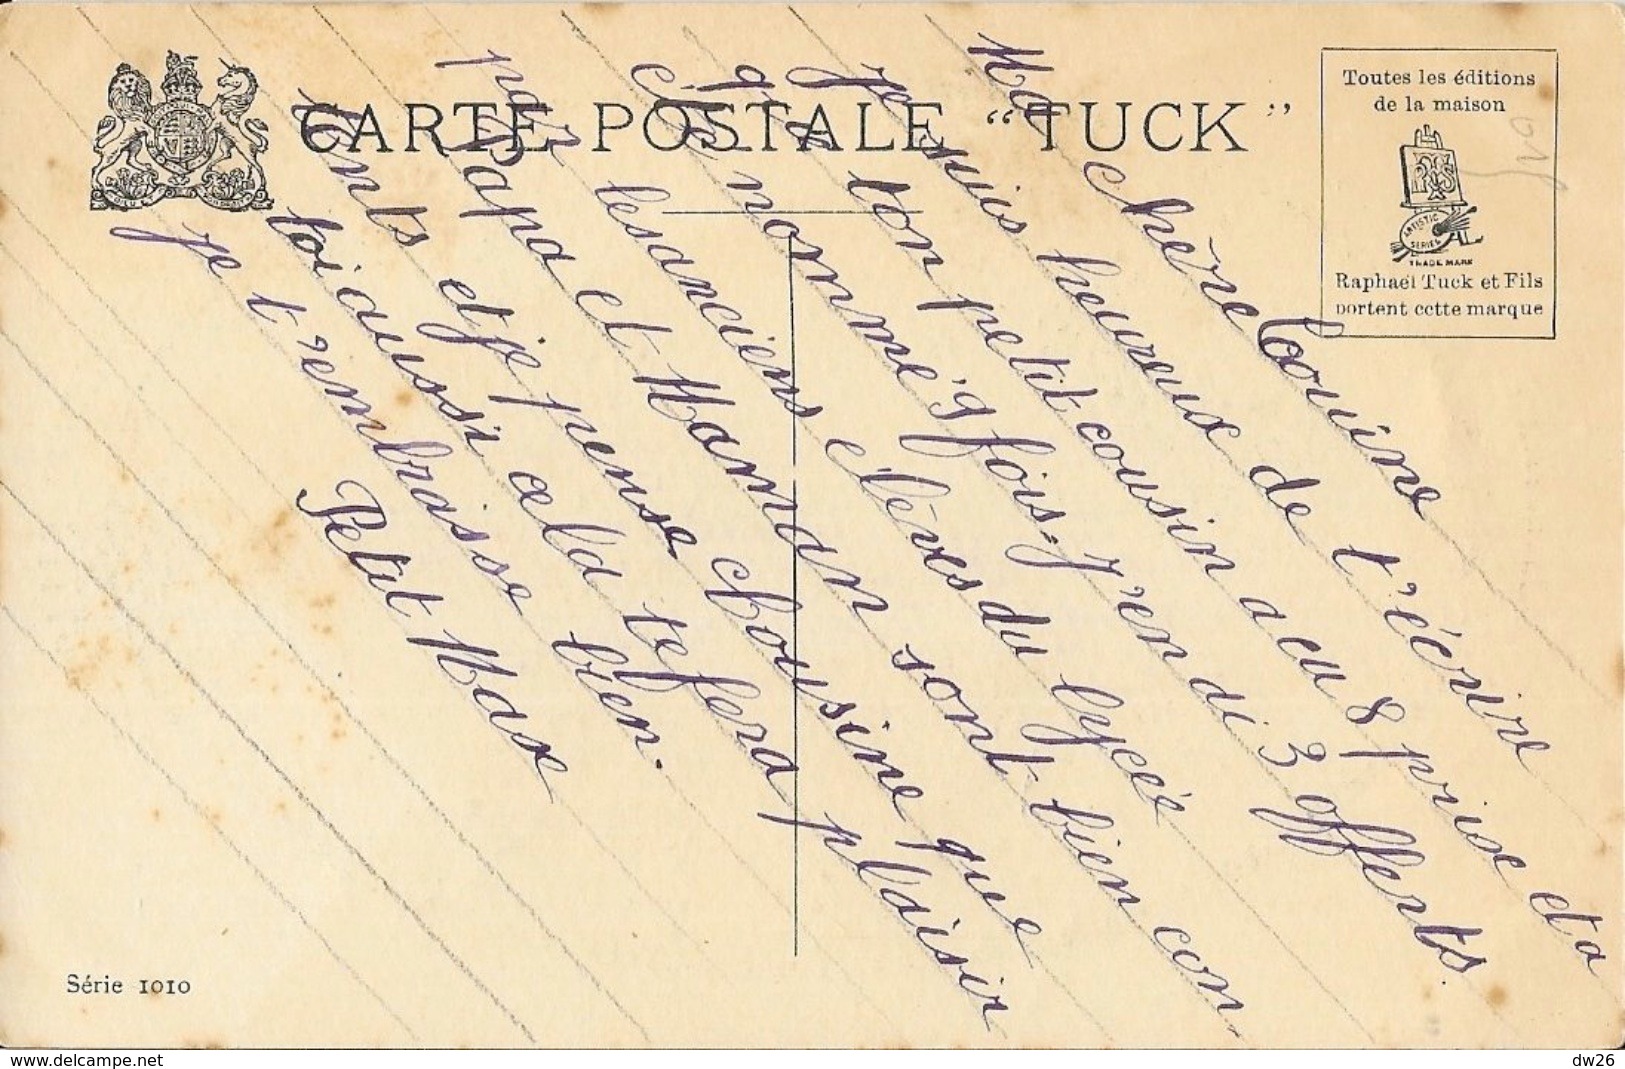 CARTE POSTALE “TUCK”
Toutes les éditions
de la maison
ARTISTIC
SERIES
TRADE MARK
Raphael Tuck et Fils
portent cette marque
Ma chère Couine
Je suis heureux de t'écrire
que ton petit cousin a eu 8 prise et a
été nommé 9 fois. J'en di 3 offerts
par les anciens élèves du lycée
Papa et Maman sont bien con
tents et je pense chousine que
toi aussi cela te fera plaisir
Je t'rembraisse bien.
Petit Max
Série 1010
www.delcampe.net
dw26